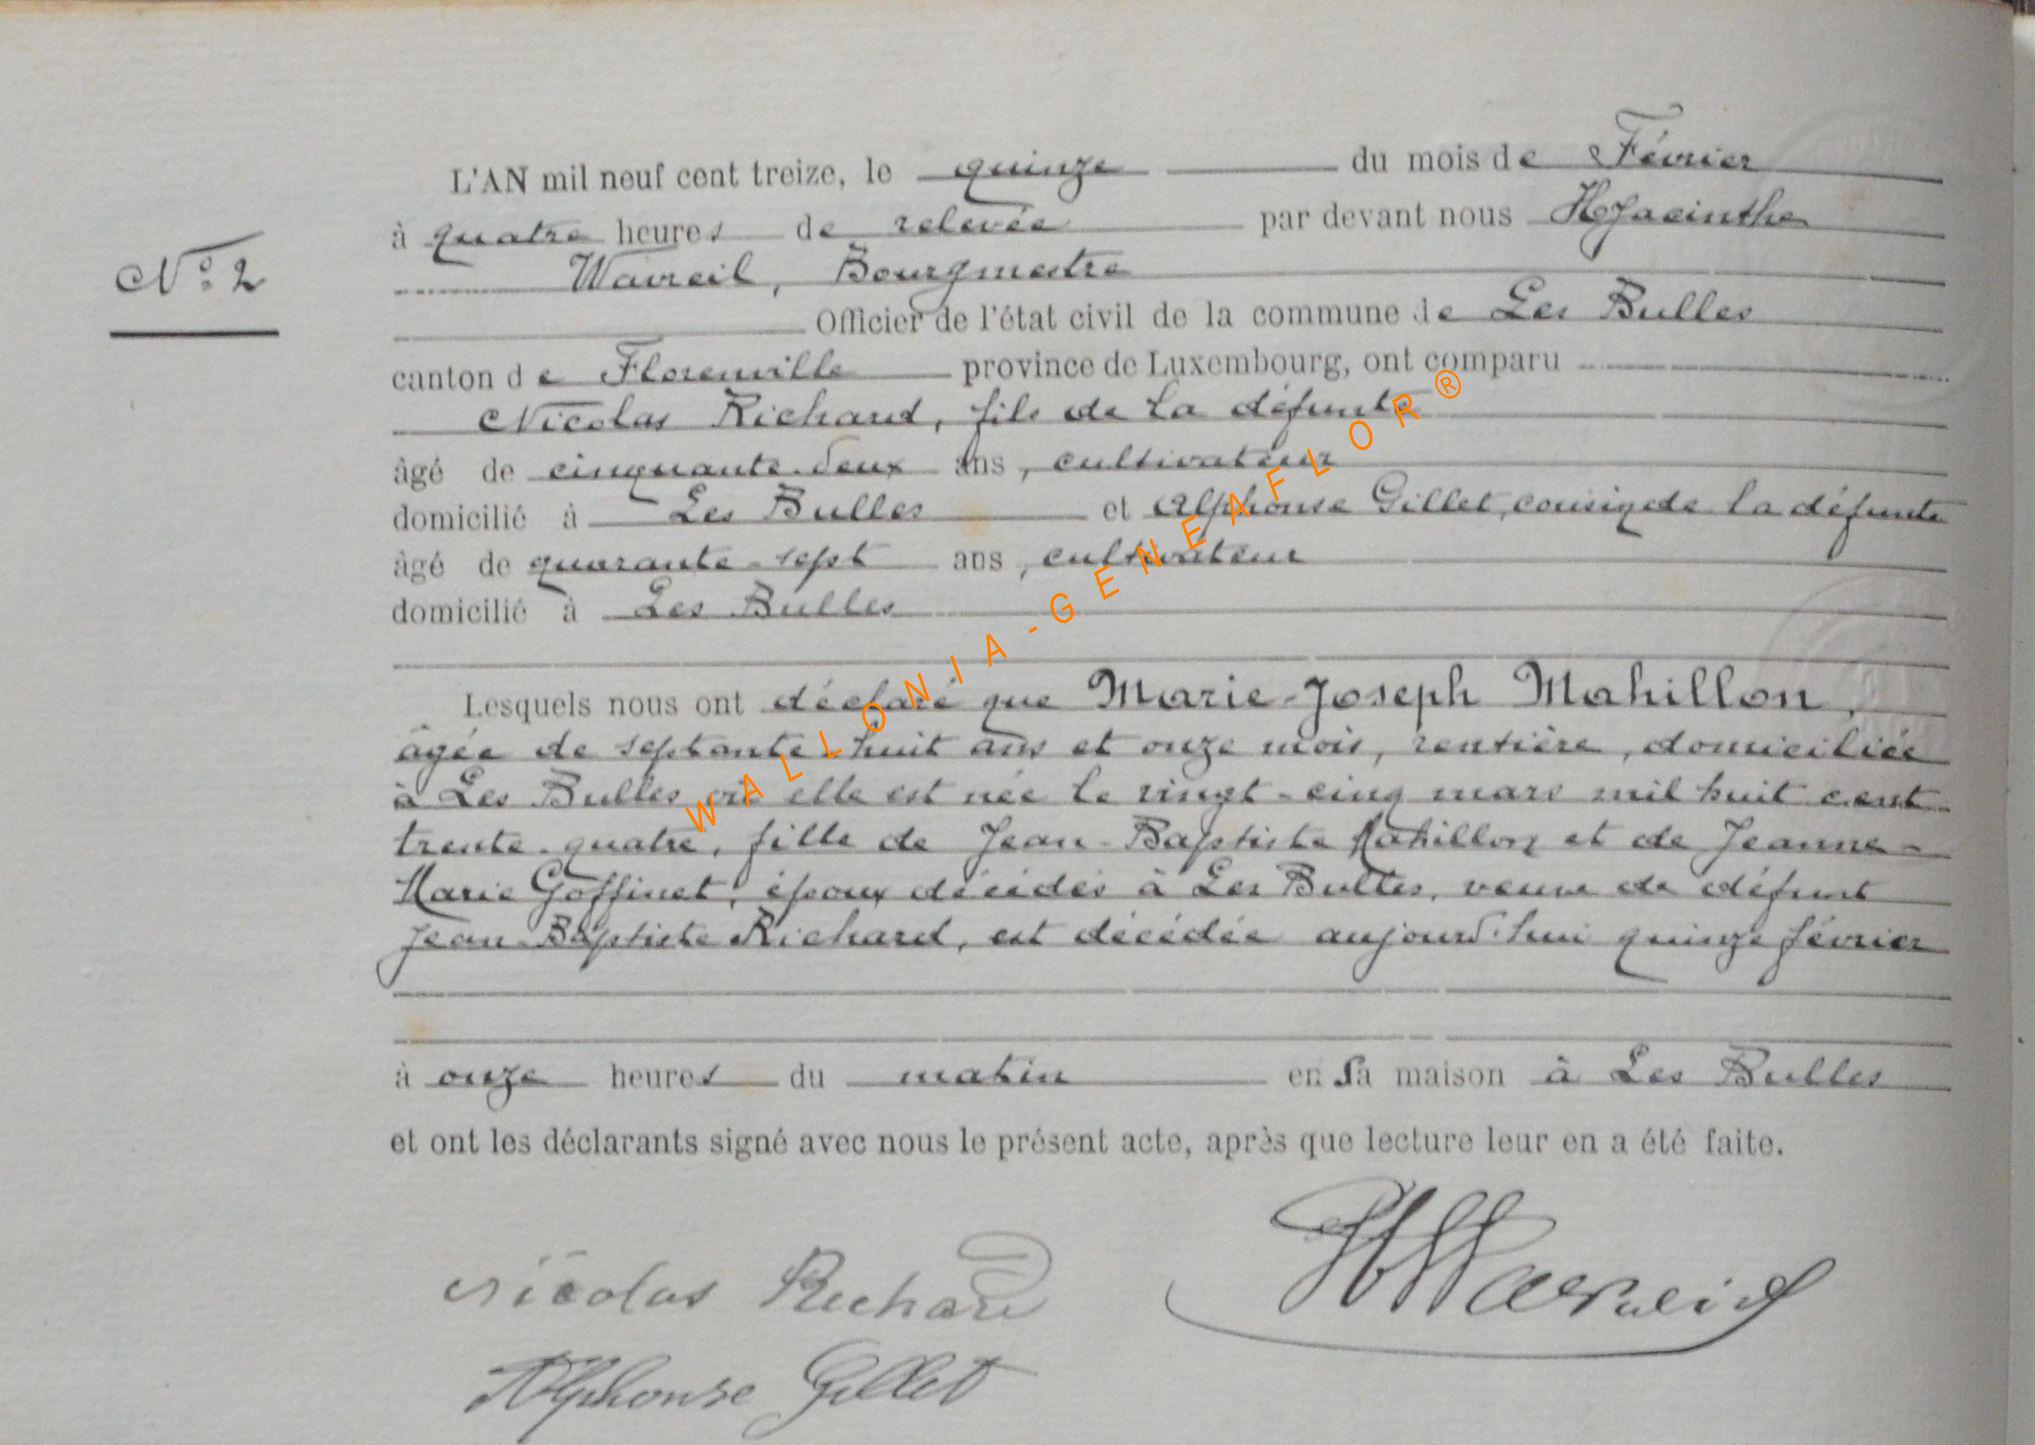 L'AN mil neuf cent treize, le quinze du mois de Février
à quatre heures de relevée par devant nous Hyacinthe
N° 2
Wavreil, Bourgmestre
Officier de l'état civil de la commune de Les Bulles
canton de Florenville province de Luxembourg, ont comparu
Nicolas Richard, fils de la défunte
âgé de cinquante-deux ans, cultivateur
domicilié à Les Bulles et Alphonse Gillet, cousin de la défunte
âgé de quarante-sept ans, cultivateur
domicilié à Les Bulles
Lesquels nous ont déclaré que Marie-Joseph Mahillon,
âgée de septante-huit ans et onze mois, rentière, domiciliée
à Les Bulles où elle est née le vingt-cinq mars mil huit cent
trente-quatre, fille de Jean-Baptiste Mahillon et de Jeanne-
Marie Goffinet, époux décédés à Les Bulles, veuve de défunt
Jean-Baptiste Richard, est décédée aujourd'hui quinze février
à onze heures du matin en sa maison à Les Bulles
et ont les déclarants signé avec nous le présent acte, après que lecture leur en a été faite.
Nicolas Richard
HWavreil
Alphonse Gillet
WALLONIA-GENEAFLOR®